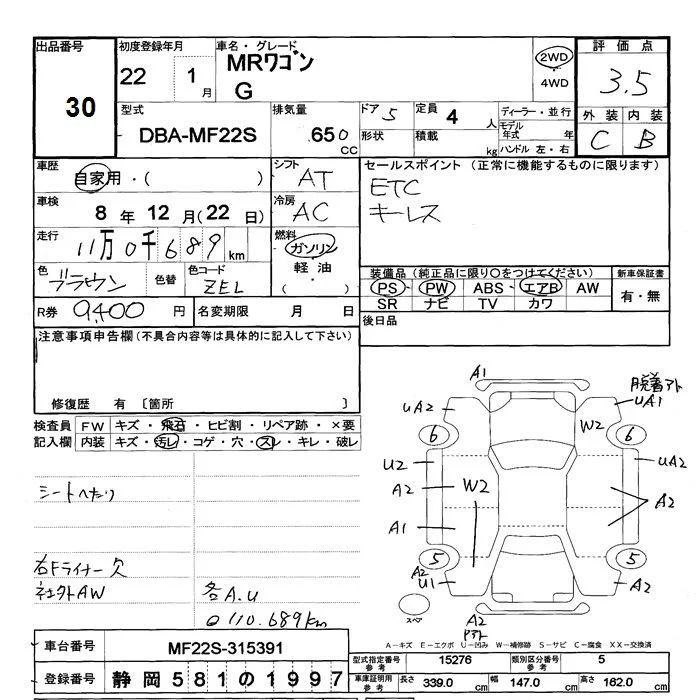 出品番号
30
初度登録年月
22 1 月
車名・グレード
MRワゴン
G
2WD
4WD
評価点
3.5
外装 内装
C B
型式
DBA-MF22S
排気量
650 CC
ドア 5
形状
定員 4 人
積載 kg
ディーラー・並行
モデル年式 年
ハンドル 左・右
車歴
自家用・( )
シフト AT
車検
8 年 12 月(22 日)
冷房 AC
走行
11万0千689 km
燃料
ガソリン
軽油
( )
色 ブラウン
色替
色コード ZEL
R券 9,400 円
名変期限 月 日
セールスポイント (正常に機能するものに限ります)
ETC
キーレス
装備品(純正品に限り○をつけてください)
PS・PW・ABS・エアB・AW
SR ナビ TV カワ
新車保証書
有・無
後日品
注意事項申告欄(不具合内容等は具体的に記入して下さい)
修復歴 有 〔箇所 〕
検査員記入欄
FW キズ・飛石・ヒビ割・リペア跡・×要
内装 キズ・汚レ・コゲ・穴・スレ・キレ・破レ
シートヘタリ
右Fライナー欠
社外AW
各A.U
110.689km
A1
脱着外
UA2
UA1
W2
6
6
U2
UA2
A2
W2
A2
A1
5
5
A2
U1
A2
スペア
A2
A-キズ E-エクボ U-凹み W-補修跡 S-サビ C-腐食 XX-交換済
車台番号
MF22S-315391
登録番号
静岡581の1997
型式指定番号 参考 15276
類別区分番号 参考 5
車庫証明用 参考
長さ 339.0 cm
幅 147.0 cm
高さ 162.0 cm